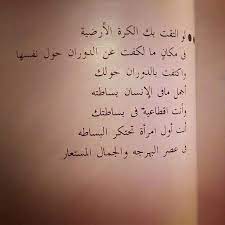 لو التقت بك الكرة الأرضية
فى مكان ما لكفت عن الدوران حول نفسها
واكتفت بالدوران حولك
أجمل مافى الإنسان بساطته
وأنت اقطاعية فى بساطتك
أنت أول امرأة تحتكر البساطه
فى عصر البهرجه والجمال المستعار